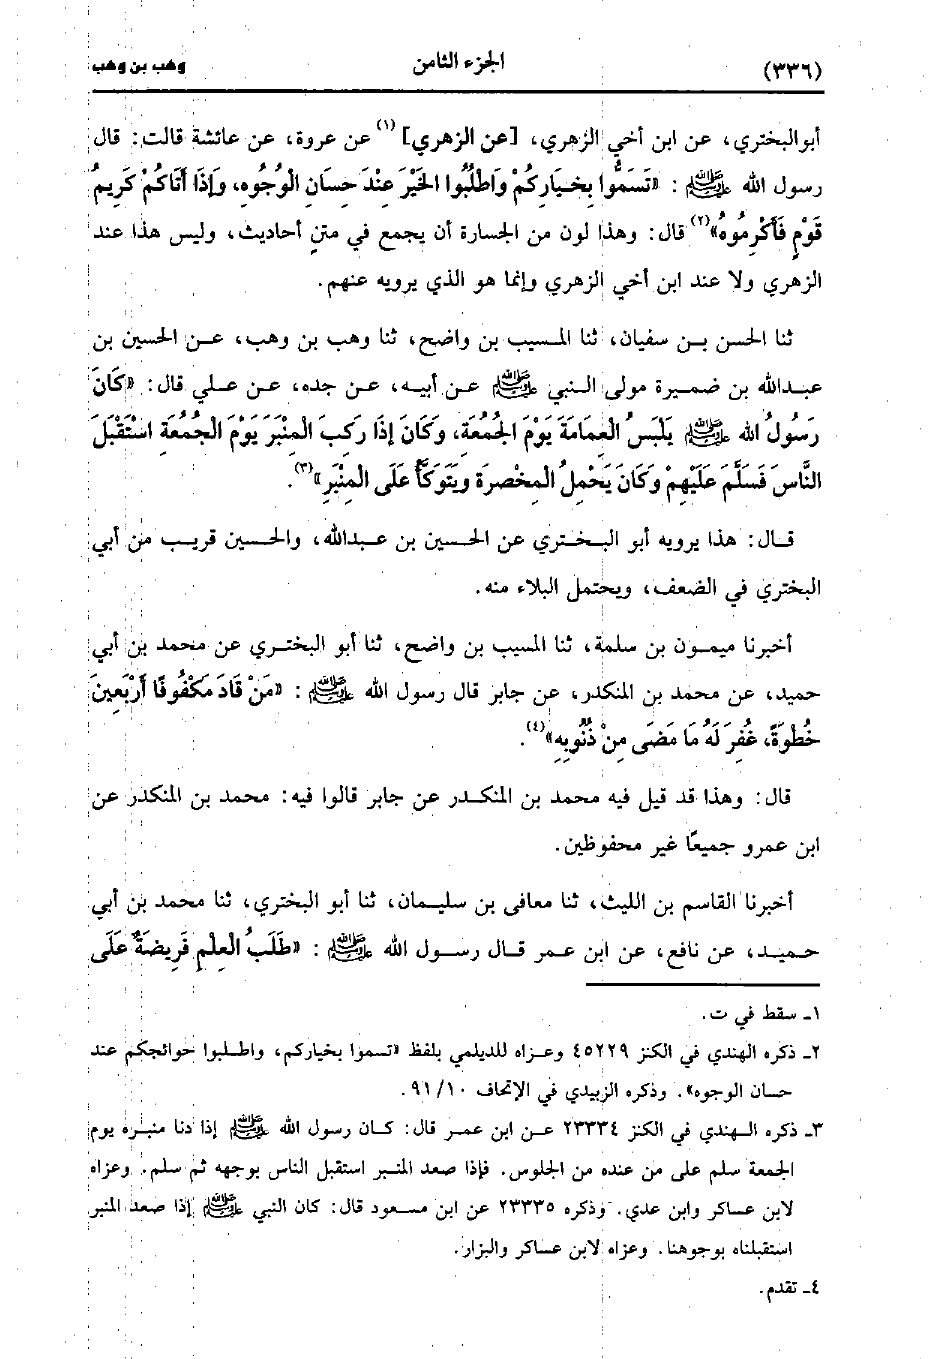 (٣٣٦) الجزء الثامن وهب بن وهب
أبوالبختري، عن ابن أخي الزهري، [عن الزهري](١) عن عروة، عن عائشة قالت: قال
رسول الله ﷺ: «تَسَمُّوا بِخِيَارِكُمْ وَاطْلُبُوا الخَيْرَ عِنْدَ حِسَانِ الوُجُوهِ، وَإِذَا أَتَاكُمْ كَرِيمُ
قَوْمٍ فَأَكْرِمُوهُ»(٢) قال: وهذا لون من الجسارة أن يجمع في متنٍ أحاديث، وليس هذا عند
الزهري ولا عند ابن أخي الزهري وإنما هو الذي يرويه عنهم.
ثنا الحسن بن سفيان، ثنا المسيب بن واضح، ثنا وهب بن وهب، عن الحسين بن
عبدالله بن ضميرة مولى النبي ﷺ عن أبيه، عن جده، عن علي قال: «كَانَ
رَسُولُ الله ﷺ يَلْبَسُ العِمَامَةَ يَوْمَ الجُمُعَةِ، وَكَانَ إِذَا رَكِبَ المِنْبَرَ يَوْمَ الجُمُعَةِ اسْتَقْبَلَ
النَّاسَ فَسَلَّمَ عَلَيْهِمْ وَكَانَ يَحْمِلُ المِخْصَرَةَ وَيَتَوَكَّأُ عَلَى المِنْبَرِ»(٣).
قال: هذا يرويه أبو البختري عن الحسين بن عبدالله، والحسين قريب من أبي
البختري في الضعف، ويحتمل البلاء منه.
أخبرنا ميمون بن سلمة، ثنا المسيب بن واضح، ثنا أبو البختري عن محمد بن أبي
حميد، عن محمد بن المنكدر، عن جابر قال رسول الله ﷺ: «مَنْ قَادَ مَكْفُوفًا أَرْبَعِينَ
خُطْوَةً، غُفِرَ لَهُ مَا مَضَى مِنْ ذُنُوبِهِ»(٤).
قال: وهذا قد قيل فيه محمد بن المنكدر عن جابر قالوا فيه: محمد بن المنكدر عن
ابن عمرو جميعًا غير محفوظين.
أخبرنا القاسم بن الليث، ثنا معافى بن سليمان، ثنا أبو البختري، ثنا محمد بن أبي
حميد، عن نافع، عن ابن عمر قال رسول الله ﷺ: «طَلَبُ العِلْمِ فَرِيضَةٌ عَلَى
١ـ سقط في ت.
٢ـ ذكره الهندي في الكنز ٤٥٢٢٩ وعزاه للديلمي بلفظ «تسموا بخياركم، واطلبوا حوائجكم عند
حسان الوجوه». وذكره الزبيدي في الإتحاف ٩١/١٠.
٣ـ ذكره الهندي في الكنز ٢٣٣٣٤ عن ابن عمر قال: كان رسول الله ﷺ إذا دنا منبره يوم
الجمعة سلم على من عنده من الجلوس. فإذا صعد المنبر استقبل الناس بوجهه ثم سلم. وعزاه
لابن عساكر وابن عدي. وذكره ٢٣٣٣٥ عن ابن مسعود قال: كان النبي ﷺ إذا صعد المنبر
استقبلناه بوجوهنا. وعزاه لابن عساكر والبزار.
٤ـ تقدم.